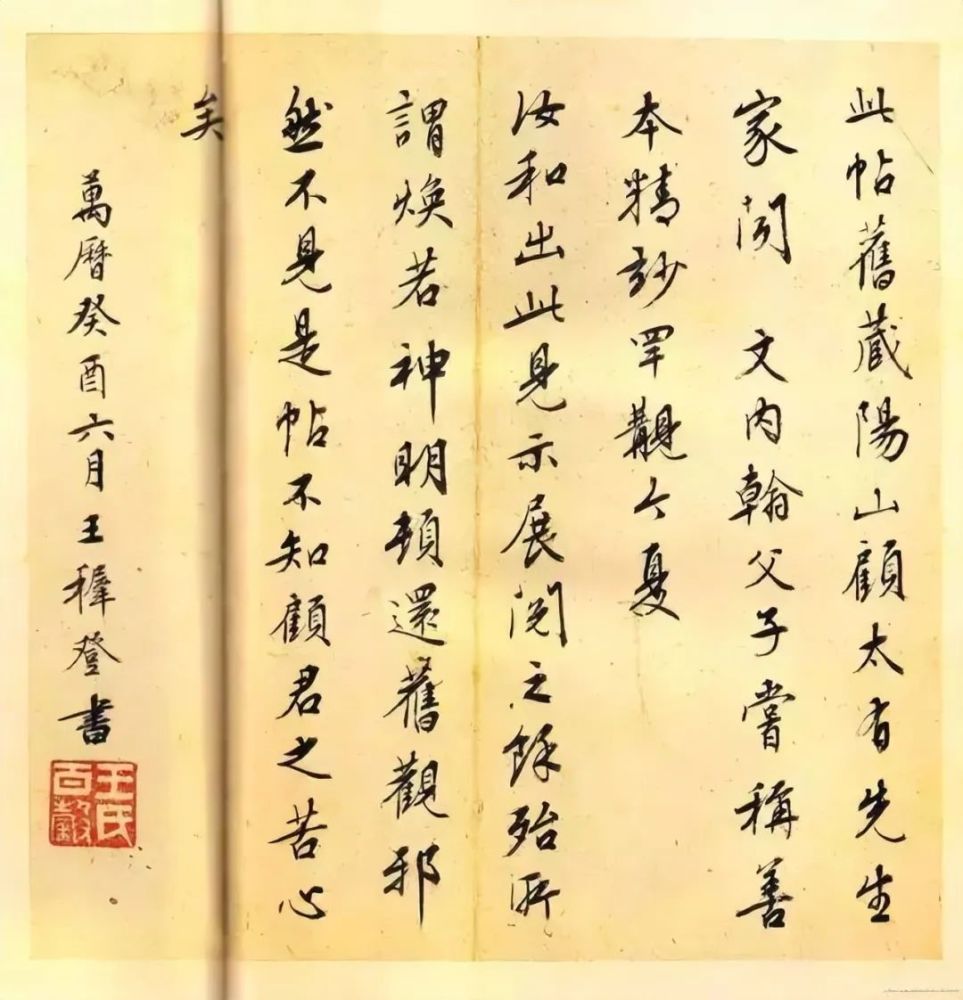 此帖舊藏陽山顧太有先生
家閒 文內翰父子嘗稱善
本精妙罕覯今夏
汝和出此見示展閱之餘殆所
謂煥若神明頓還舊觀邪
然不見是帖不知顧君之苦心
矣
萬曆癸酉六月王穉登書
王氏百穀